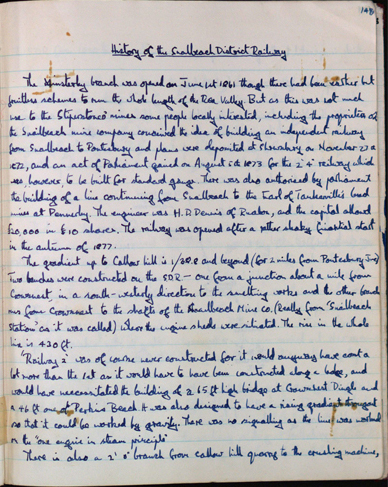 149
History of the Snailbeach District Railway
The Minsterley branch was opened on June 1st 1861 though there had been earlier but
fruitless schemes to run the whole length of the Rea Valley. But as this was not much
use to the Stiperstones miners some people locally interested, including the proprietors of
the Snailbeach mine company conceived the idea of building an independent railway
from Snailbeach to Pontesbury and plans were deposited at Shrewsbury on November 27
1872, and an act of Parliament gained on August 5th 1873 for the 2' 4" railway which
was, however, to be built for standard gauge. There was also authorised by parliament
the building of a line continuing from Snailbeach to the Earl of Tankerville's lead
mines at Pennerley. The engineer was H. Dennis of Ruabon, and the capital allowed
£20,000 in £10 shares. The railway was opened after a rather shaky financial start
in the autumn of 1877.
The gradient up to Callow hill is 1/38.2 and beyond (for 2 miles from Pontesbury Jn)
Two branches were constructed on the SDR – one from a junction about a mile from
Crowsnest, in a south-westerly direction to the smelting works and the other branch
runs from Crowsnest to the shafts of the Snailbeach Mine Co. (Really from 'Snailbeach
Station' as it was called) where the engine sheds were situated. The rise in the whole
line is 430 ft.
'Railway 2' was of course never constructed for it would anyway have cost a
lot more than the 1st as it would have to have been constructed along a ledge, and
would have necessitated the building of a 65 ft high bridge at Crowsnest Dingle and
a 46 ft one at Perkins Beach. It was also designed to have a rising gradient throughout
so that it could be worked by gravity. There was no signalling as the line was worked
on the "one engine in steam principle"
There is also a 2' 0" branch from callow hill quarry to the crushing machine,